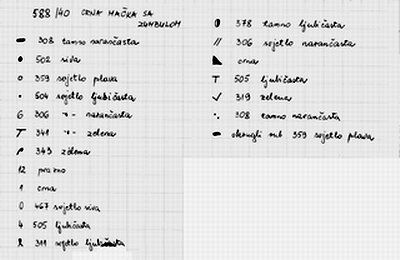 588/40 CRNA MAČKA SA
ZUMBULOM
308 tamno narančasta
502 siva
359 svjetlo plava
504 svjetlo ljubičasta
6 306 -"- narančasta
T 341 -"- zelena
343 zelena
12 prazno
1 crna
0 467 svjetlo siva
4 505 ljubičasta
311 svjetlo ljubičasta
378 tamno ljubičasta
// 306 svjetlo narančasta
crna
T 505 ljubičasta
✓ 319 zelena
308 tamno narančasta
okrugli rub 359 svjetlo plava